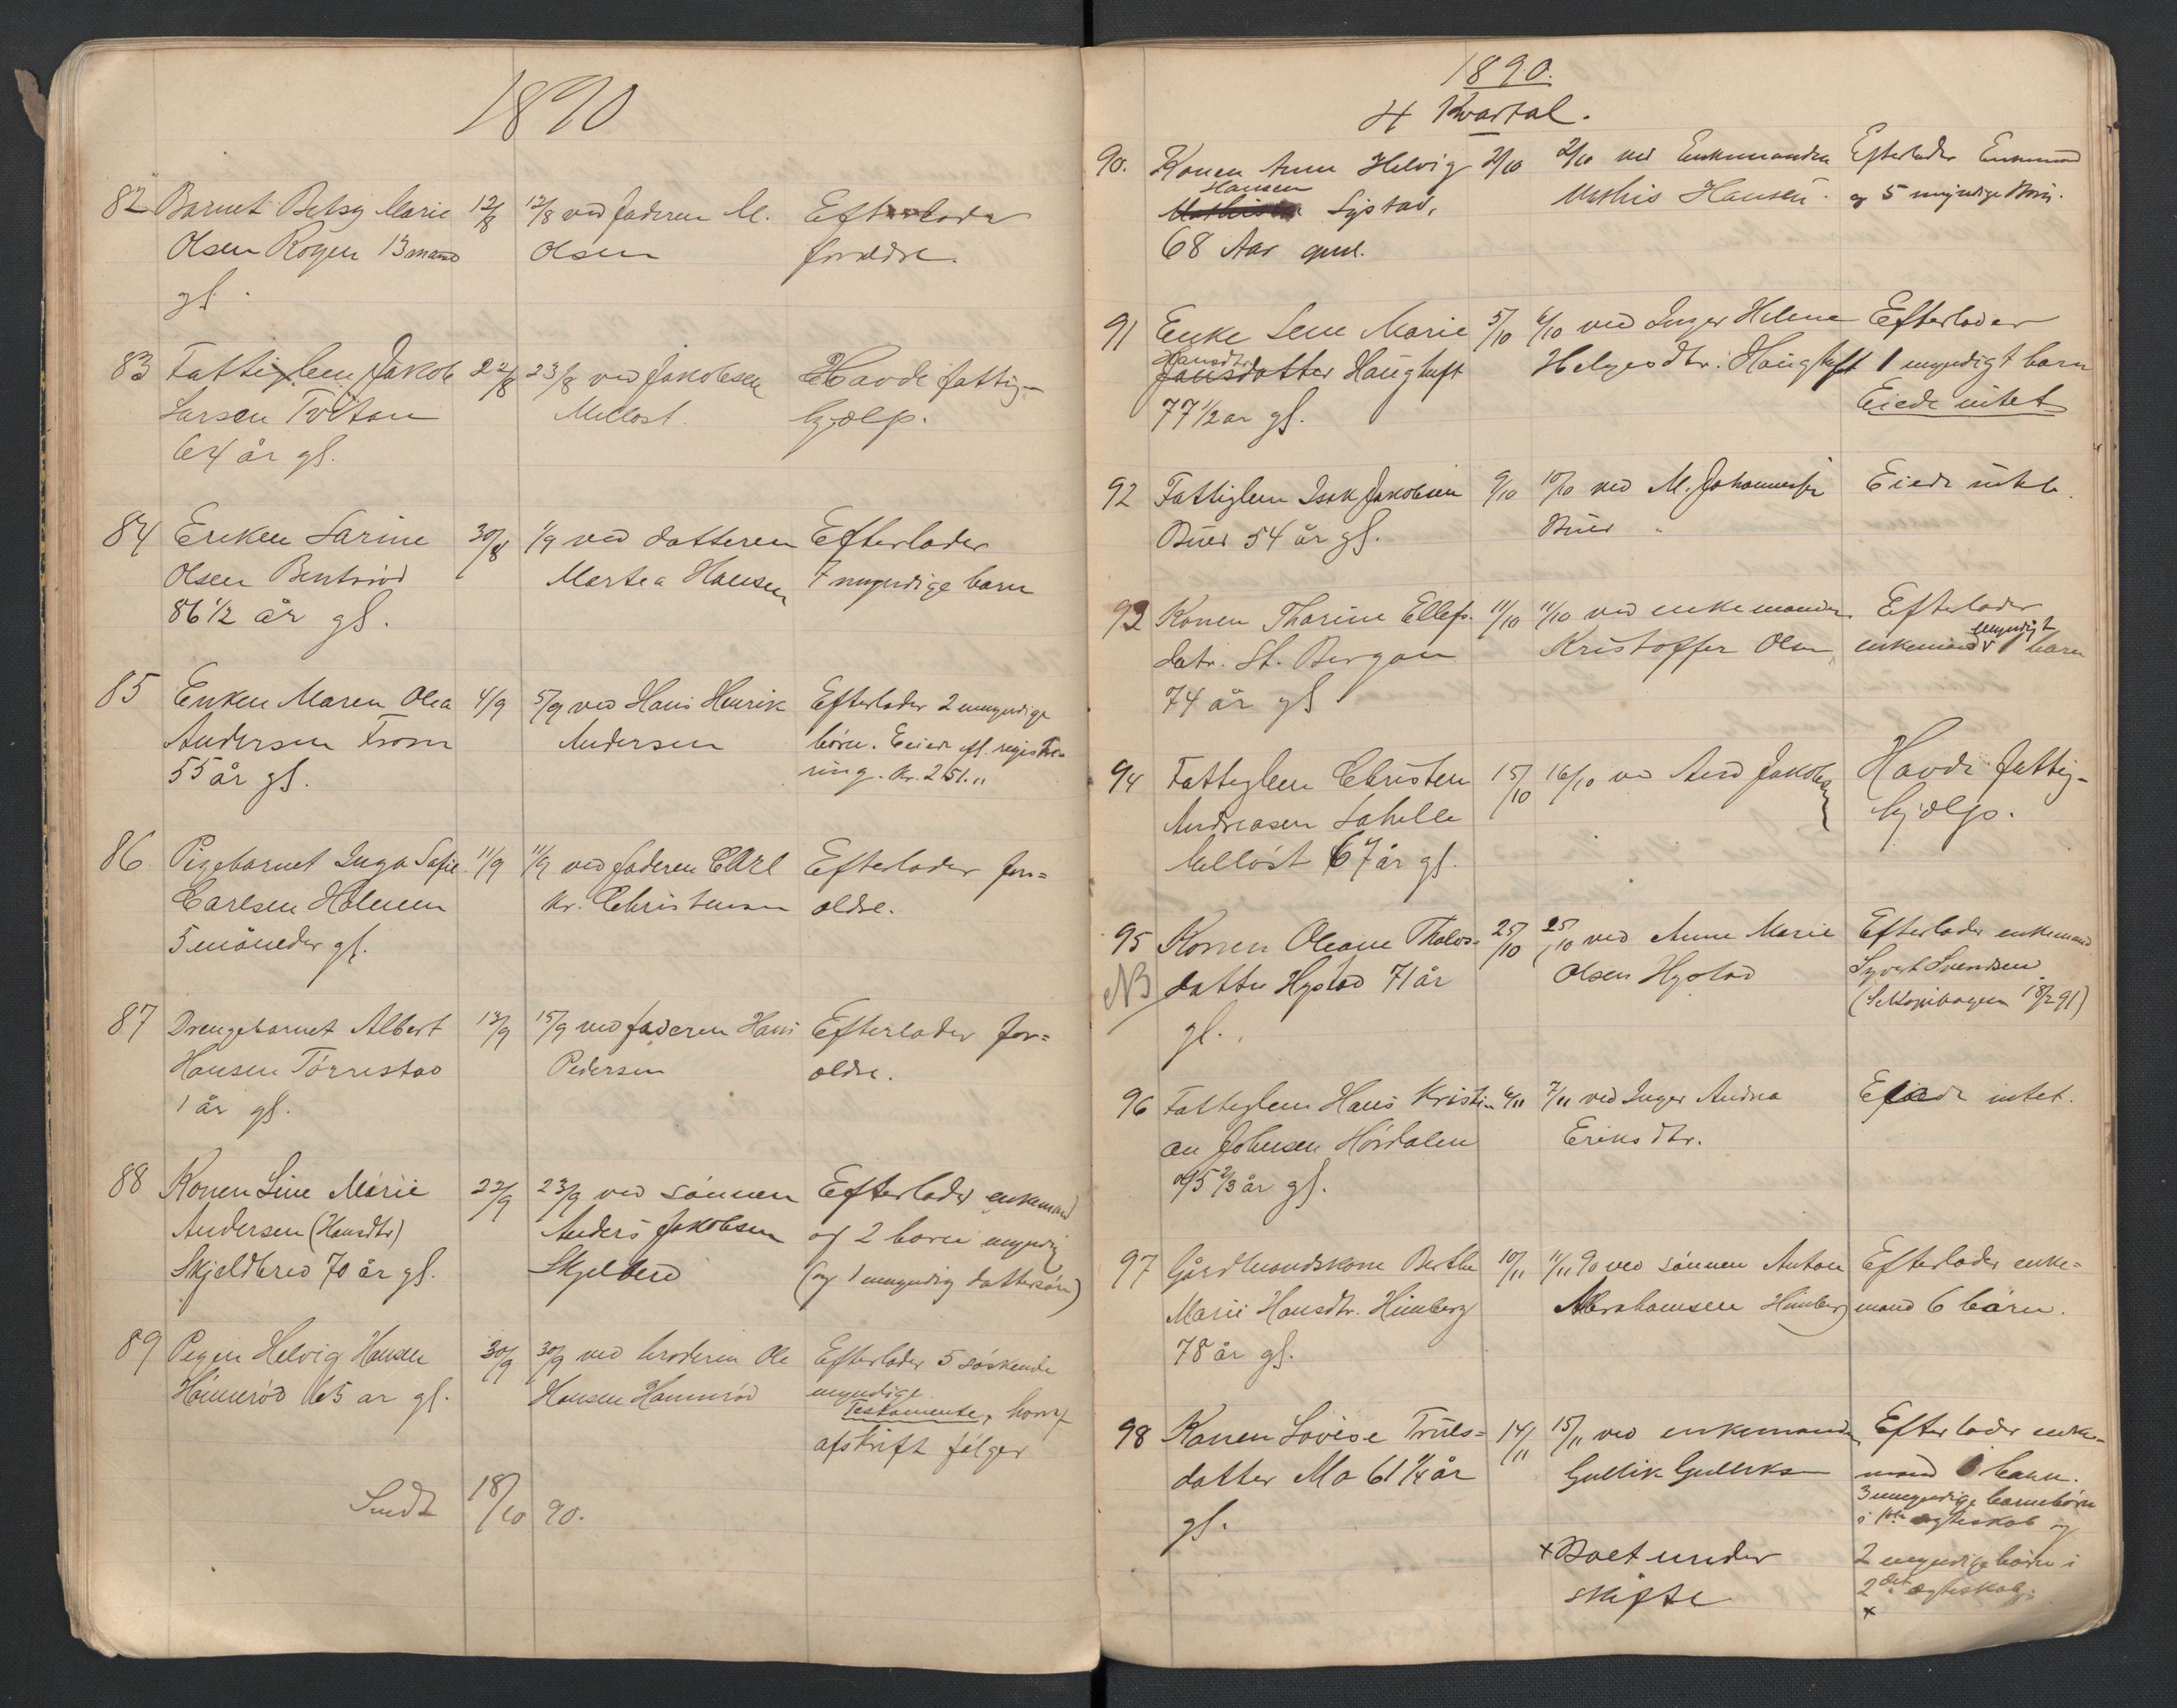 1890
82 Barnet Betsy Marie 12/8 12/8 ved faderen M. Efterlader
Olsen Rogen 13 Olsen forældre.
gl.
83 Fattiglem Jakob 22/8 23/8 ved Jakobsen Havde fattig-
Larsen Tvetan Melløst. hjælp.
64 år gl.
84 Enken Sarine 30/8 1/9 ved datteren Efterlader
Olsen Bentsrød Martea Hansen 7 myndige barn
86 1/2 år gl.
85 Enken Maren Olea 4/9 5/9 ved Hans Henrik Efterlader 2 umyndige
Andersen From Andersen børn. Eiede efl. registre-
55 år gl. ring. Kr. 251.„
86 Pigebarnet Inga Sofie 11/9 11/9 ved faderen Carl Efterlader for=
Carlsen Holmen Kr. Christensen ældre.
5 måneder gl.
87 Drengebarnet Albert 13/9 15/9 ved faderen Hans Efterlader for=
Hansen Tørrestad Pedersen ældre.
1 år gl.
88 Konen Line Marie 22/9 23/9 ved sønnen Efterlader enkemand
Andersen (Hansdtr) Anders Jakobsen og 2 barn myndig
Skjeldbred 70 år gl. Skjelbred (og 1 umyndig dattersøn)
89 Pigen Helvig Hansen 30/9 30/9 ved broderen Ole Efterlader 5 søskende
Hannerød 65 ar gl. Hansen Hannerød myndige.
Testamente, hvoraf
afskrift følger
Sendt 18/10 90.
1890.
4 Kvartal.
90. Konen Anne Helvig 2/10 2/10 ved Enkemanden Efterlader Enkemand
Hansen
Systad, Mathis Hansen. og 5 myndige Børn.
68 Aar gml.
91 Enke Lene Marie 5/10 6/10 ved Inger Helene Efterlader
Hansdtr
Jansdatter Haugtuft Helgesdtr. Haugtuft 1 myndigt barn
77 1/2 ar gl. Eiede intet
92 Fattiglem Isak Jakobsen 9/10 10/10 ved M. Johannesen Eiede intet.
Buer 54 år gl. Buer
93 Konen Thorine Ellefs. 11/10 11/10 ved enkemanden Efterlader
myndigt
datr. St. Bergan Kristoffer Olsen enkemand 1 barn
74 år gl
94 Fattiglem Christen 15/10 16/10 ved And Jakobsen Havde fattig-
Andreasen hjælp.
Melløst 67 år gl.
95 Konen Oleane Tholvs- 25/10 25/10 ved Anne Marie Efterlader enkemand
NB datter Hystad 71 år Olsen Hystad Syvert Svendsen
gl. (Se Kopibogen 18/2 91)
96 Fattiglem Hans Kristi- 6/11 7/11 ved Inger Andrea Eiede intet.
an Johnsen Hørdalen Eriksdtr.
75 2/3 år gl.
97 Gårdmandskone Berthe 10/11 11/11 90 ved sønnen Anton Efterlader enke=
Marie Hansdtr. Himberg Abrahamsen Himberg mand 6 børn.
78 år gl.
98 Konen Lovise Truls= 14/11 15/11 ved enkemanden Efterlader enke-
datter Mo 61 1/4 år Gullik Gulliksen mand barn.
gl. 3 umyndige barnebørn
i 1ste ægteskab og
x Boet under 2 myndige børn i
skifte 2det ægteskab.
x